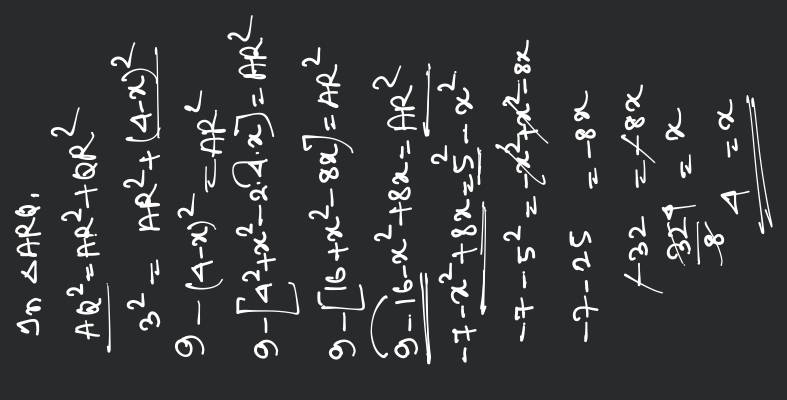 In △ARQ,
AQ² = AR² + QR²
3² = AR² + (4-x)²
9 - (4-x)² = AR²
9 - [4² + x² - 2·4·x] = AR²
9 - [16 + x² - 8x] = AR²
9 - 16 - x² + 8x = AR²
-7 - x² + 8x = 5² - x²
-7 - 5² = -x² + x² - 8x
-7 - 25 = -8x
-32 = -8x
32/8 = x
4 = x